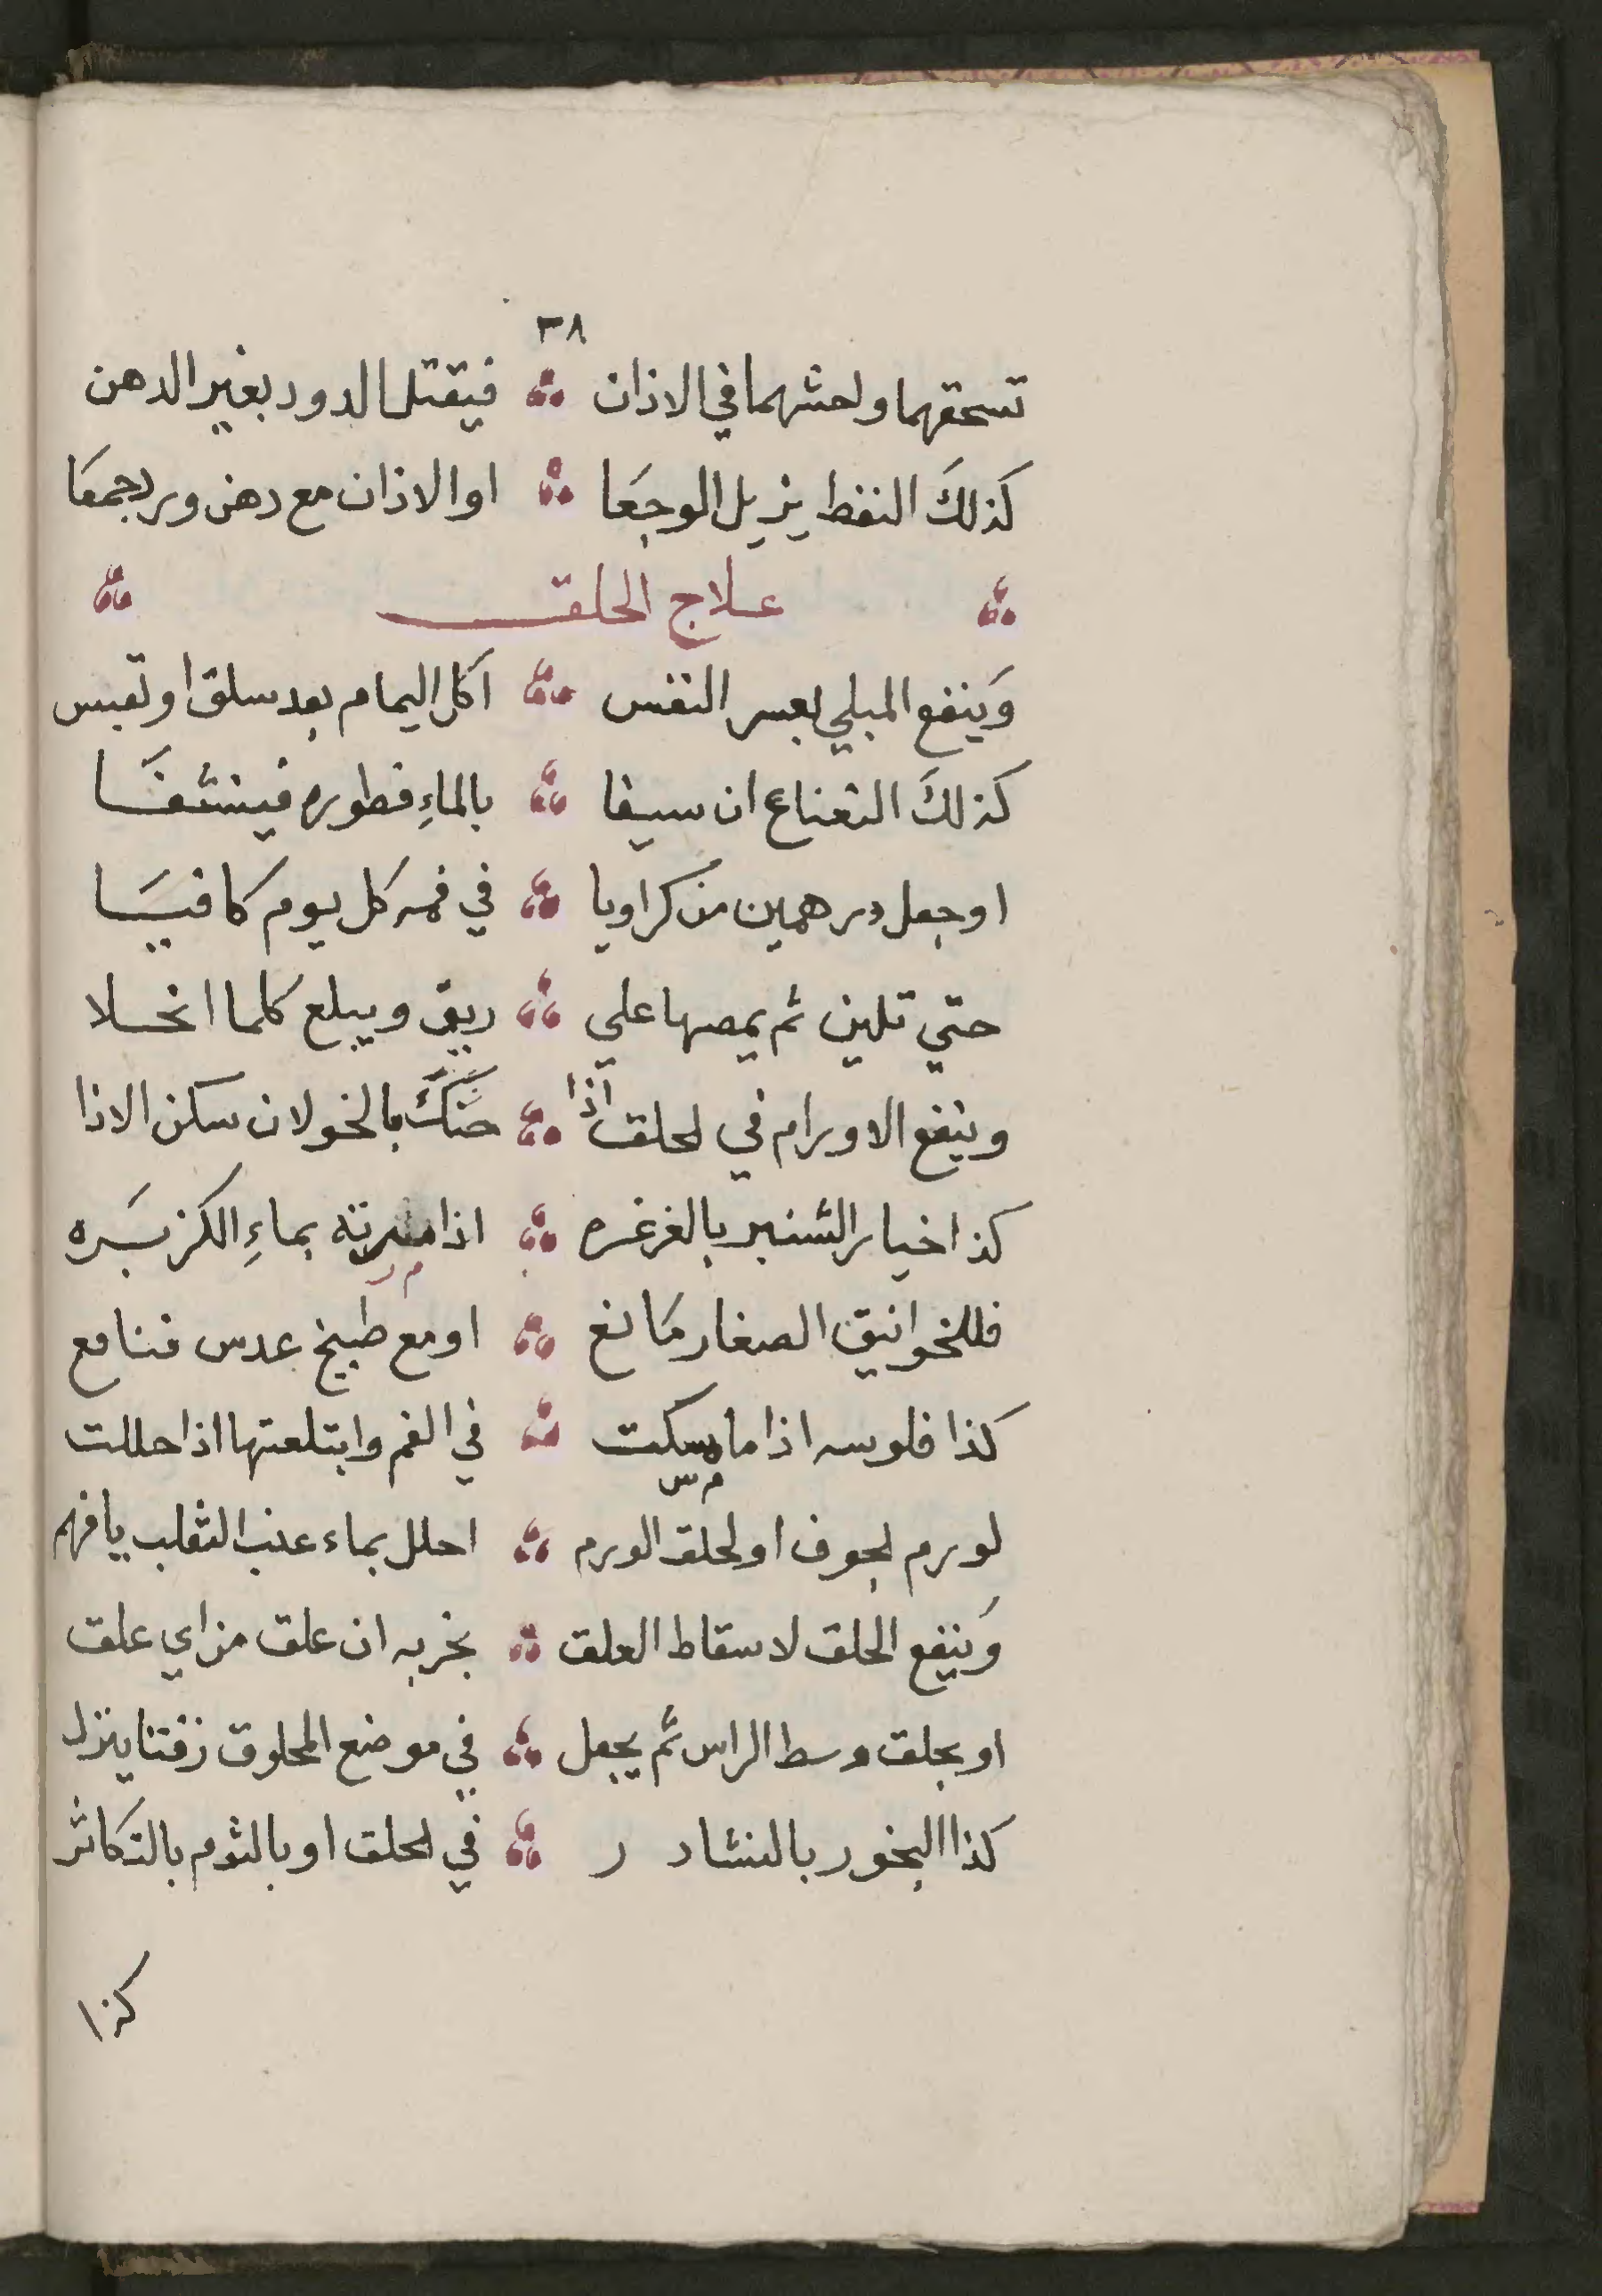 ٣٨
تسحقهما واحشهما في الاذان فيقتل الدود بغير الدهن
كذلكَ النفط يزيل الوجعَا او الاذان مع دهن ورد جمعَا
علاج الحلق
وَينفع المبلي بعسر النفس اكل اليمام بعد سلق او تعبس
كذلكَ النعناع ان سيفا بالماءِ فطوره فينشفَا
او جعل درهمين من كراويا في فمه كل يوم كافيَا
حتي تلين ثم يمصها علي ريق ويبلع كلما انحلا
وينفع الاورام في الحلق اذا حنكَ بالخولان سكن الاذا
كذا خيار الشنبر بالغرغره اذا مرته بماءِ الكزبَره
فللخوانيق الصغار مَانع او مع طبيخ عدس فنافع
كذا فلوسه اذا ما مسكت في الفم وابتلعتها اذا حللت
لورم الجوف او لحلق الورم احلل بماء عنب الثعلب يا فهم
وَينفع الحلق لاسقاط العلق بخر به ان علق من اي علق
او يحلق وسط الراس ثم يجعل في موضع المحلوق زفتا ينزل
كذا البخور بالنشادر في الحلق او بالثوم بالتكاثر
كذا